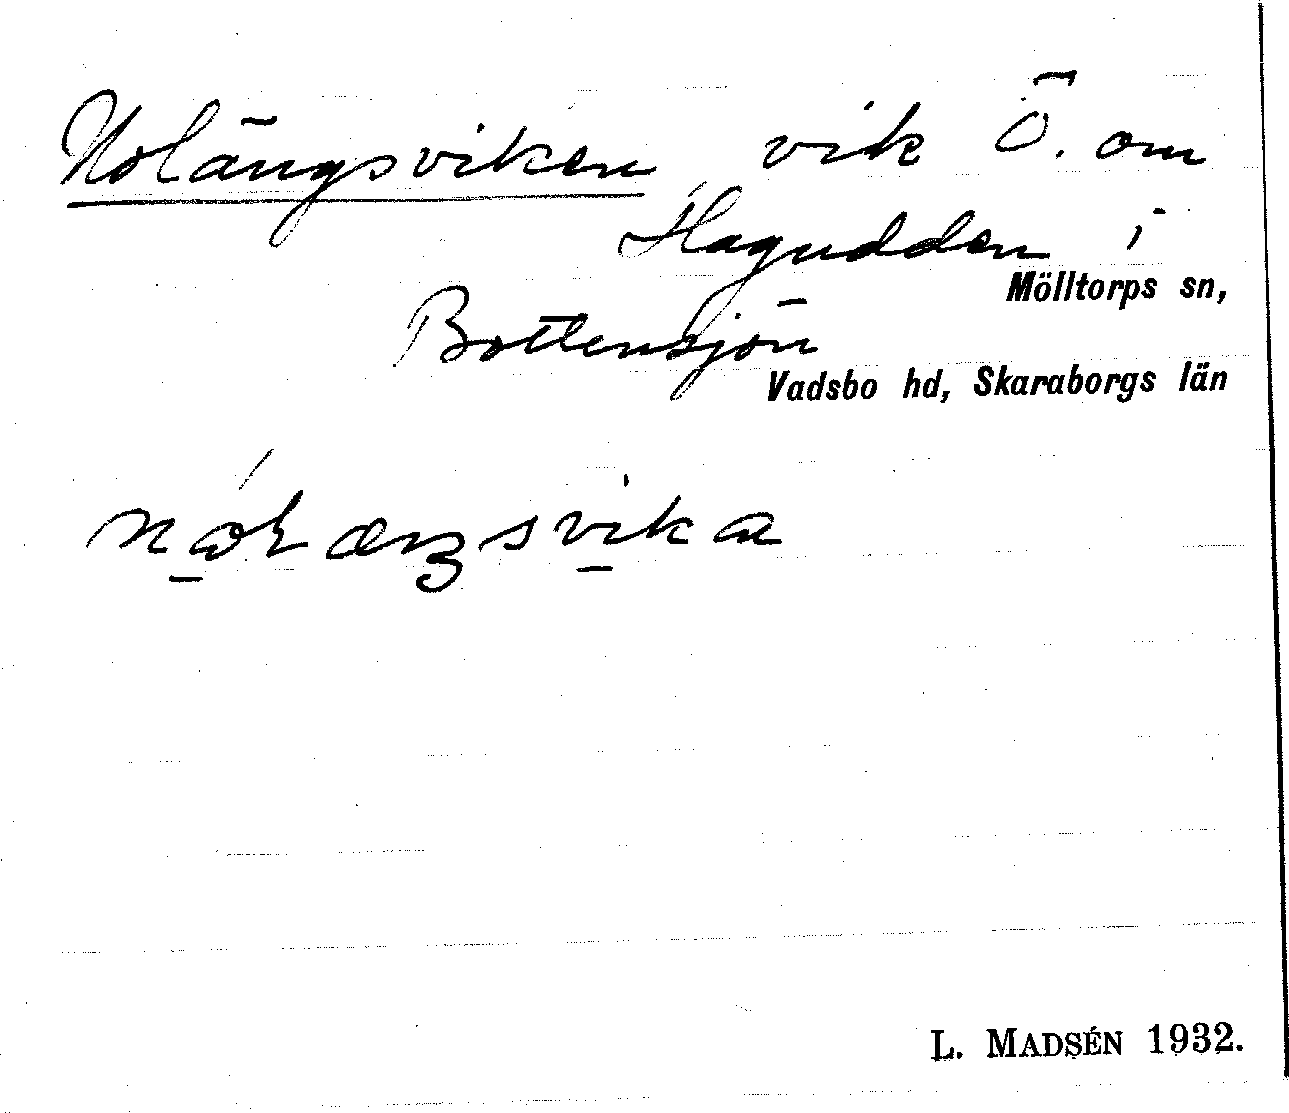 Nolängsviken vik Ö. om
Hagudden i
Mölltorps sn,
Bottensjön
Vadsbo hd, Skaraborgs län
L. MADSÉN 1932.